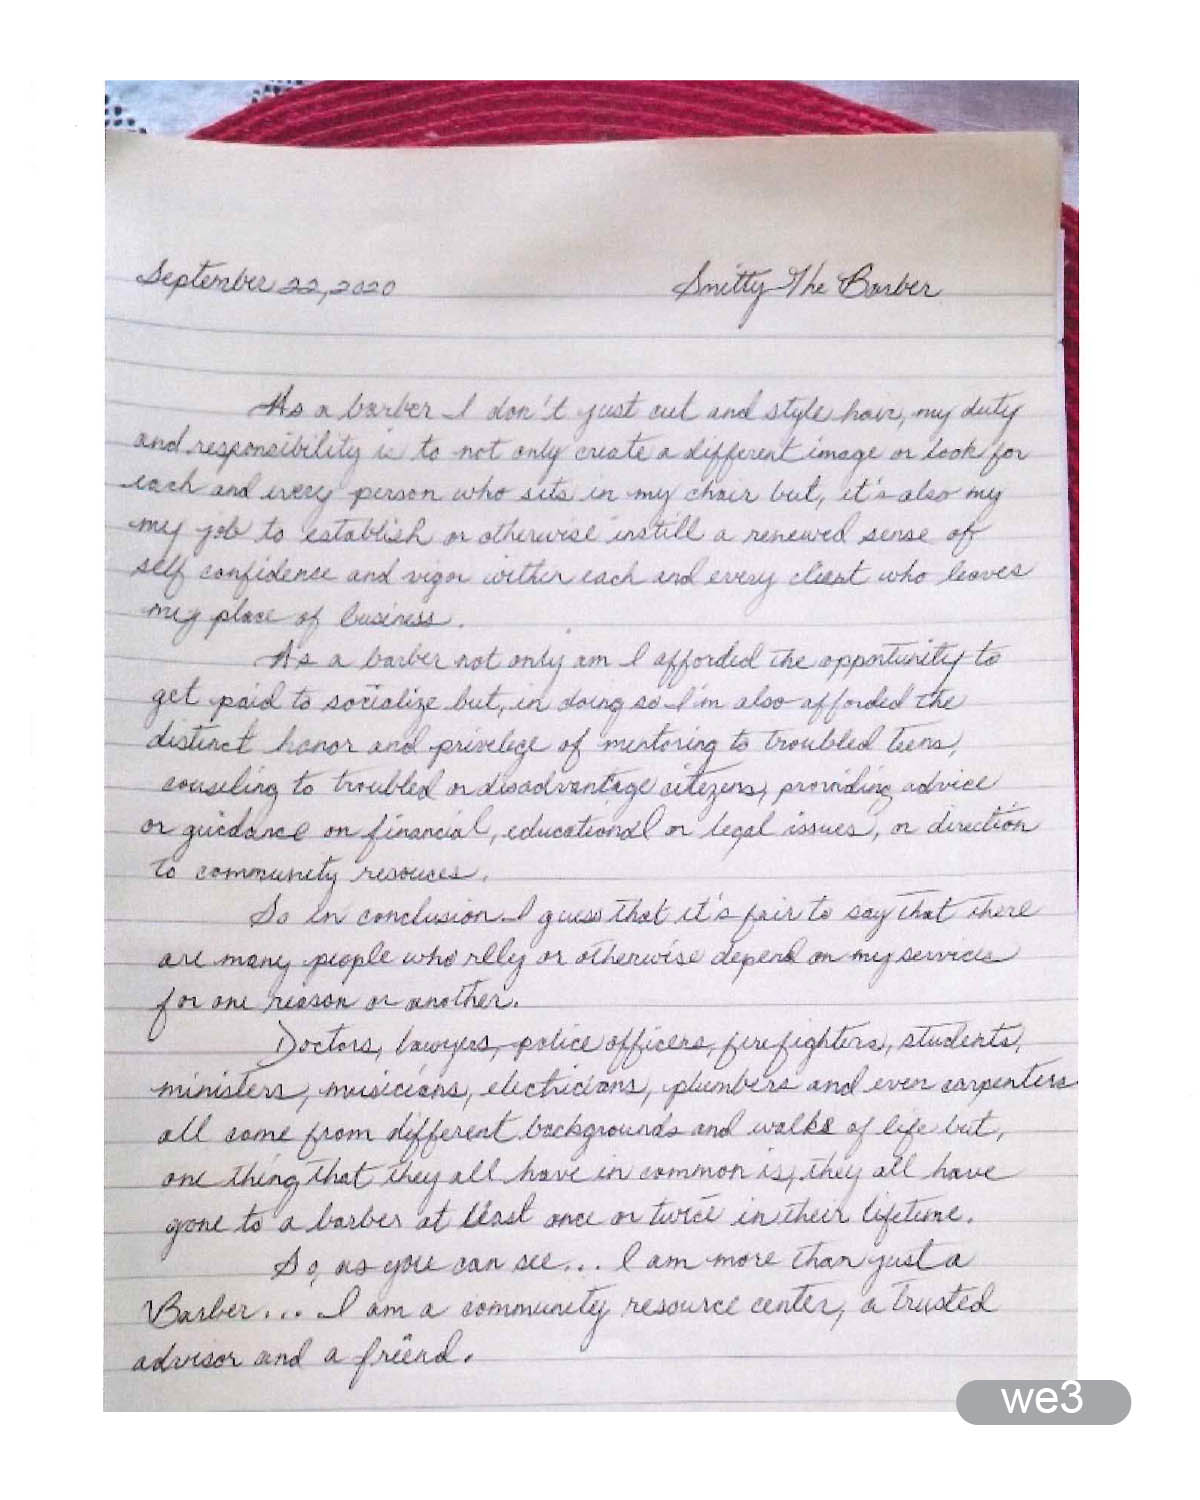 September 22, 2020 Smitty The Barber
As a barber I don't just cut and style hair, my duty
and responsibility is to not only create a different image or look for
each and every person who sits in my chair but, it's also my
my job to establish or otherwise instill a renewed sense of
self confidence and vigor within each and every client who leaves
my place of business.
As a barber not only am I afforded the opportunity to
get paid to socialize but, in doing so I'm also afforded the
distinct honor and privelege of mentoring to troubled teens,
couseling to troubled or disadvantage citezens, providing advice
or guidance on financial, educational or legal issues, or direction
to community resouces.
So in conclusion I guess that it's fair to say that there
are many people who relly or otherwise depend on my services
for one reason or another.
Doctors, lawyers, police officers, firefighters, students,
ministers, musicians, electricians, plumbers and even carpenters
all come from different backgrounds and walks of life but,
one thing that they all have in common is, they all have
gone to a barber at least once or twice in their lifetime.
So, as you can see... I am more than just a
Barber... I am a community resource center, a trusted
advisor and a friend.
we3